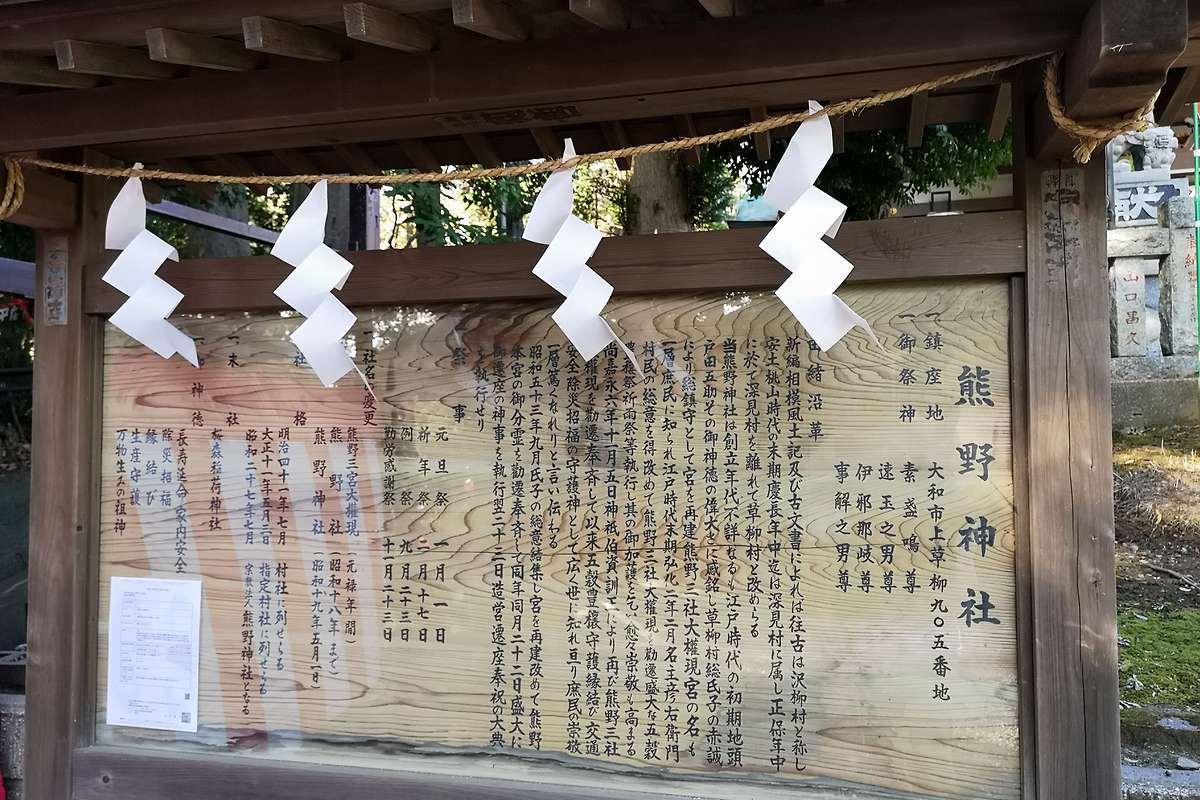 熊野神社
一 鎮座地 大和市上草柳九〇五番地
一 御祭神 素盞鳴尊
速玉之男尊
伊邪那岐尊
事解之男尊
由緒沿革
新編相模風土記及び古文書によれば往古は沢柳村と称し
安土桃山時代の末期慶長年中迄は深見村に属し正保年中
に於て深見村を離れて草柳村と改めらる
当熊野神社は創立年代不詳なるも江戸時代の初期地頭
戸田五助その御神徳の偉大さに感銘し草柳村総氏子の赤誠
により総鎮守として宮を再建熊野三社大権現宮の名も
一層庶民に知られ江戸時代末期弘化二年二月名主彦右衛門
村民の総意を得改めて熊野三社大権現を勧遷盛大な五穀
豊穣祭祈雨祭等執行し其の御加護とて愈々崇敬も高まる
尚嘉永六年十一月五日神祇伯資訓王により再び熊野三社
大権現を勧遷奉斉して以来五穀豊穣守護縁結び交通
安全除災招福の守護神として広く世に知れ亘り庶民の崇敬
一層篤くなれりと言い伝わる
昭和五十三年九月氏子の総意結集し宮を再建改めて熊野
本宮の御分霊を勧遷奉斉して同年同月二十二日盛大に
御遷座の神事を執行翌二十三日造営遷座奉祝の大典
を執行せり
一 祭事 元旦祭 一月一日
祈年祭 二月十七日
例祭 九月二十三日
勤労感謝祭 十月二十三日
一 社名変更 熊野三宮大権現 (元禄年間)
熊野社 (昭和十八年まで)
熊野神社 (昭和十九年五月一日)
社格 明治四十一年七月 村社に列せらる
大正十一年五月二日 指定村社に列せらる
昭和二十七年七月 宗教法人熊野神社となる
一 末社 桜森稲荷神社
神徳 長寿延命 家内安全
除災招福
縁結び
生産守護
万物生みの祖神
山口昌久